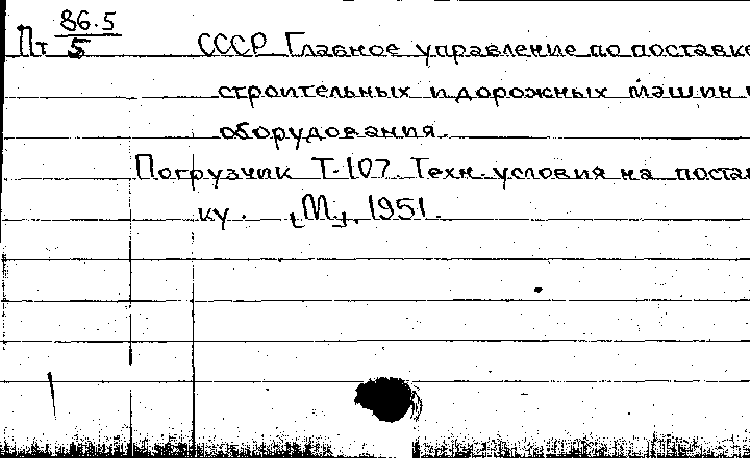 Пт 86.5/5
СССР Главное управление по поставке
строительных и дорожных машин и
оборудования.
Погрузчик Т-107. Техн. условия на постав
ку. [М], 1951.